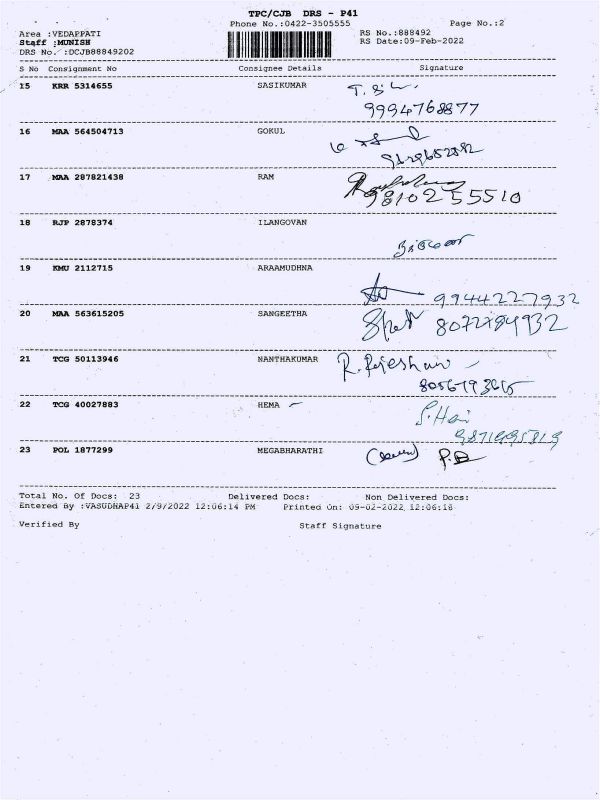 TPC/CJB DRS - P41
Phone No.:0422-3505555
Page No.:2
Area :VEDAPPATI
RS No.:888492
Staff :MUNISH
RS Date:09-Feb-2022
DRS No. :DCJB88849202
S No Consignment No Consignee Details Signature
15 KRR 5314655 SASIKUMAR
9994768877
16 MAA 564504713 GOKUL
17 MAA 287821438 RAM
9810255510
18 RJP 2878374 ILANGOVAN
19 KMU 2112715 ARAAMUDHNA
9944227932
20 MAA 563615205 SANGEETHA
21 TCG 50113946 NANTHAKUMAR R. Rajeshwar
22 TCG 40027883 HEMA
23 POL 1877299 MEGABHARATHI
Total No. Of Docs: 23 Delivered Docs: Non Delivered Docs:
Entered By :VASUDHAP41 2/9/2022 12:06:14 PM Printed On: 09-02-2022 12:06:18
Verified By Staff Signature